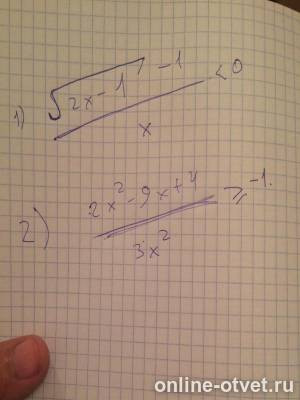 1) (√(2x-1) -1)/x < 0
2) (2x² - 9x + 4)/3x² ≥ -1.
online-otvet.ru